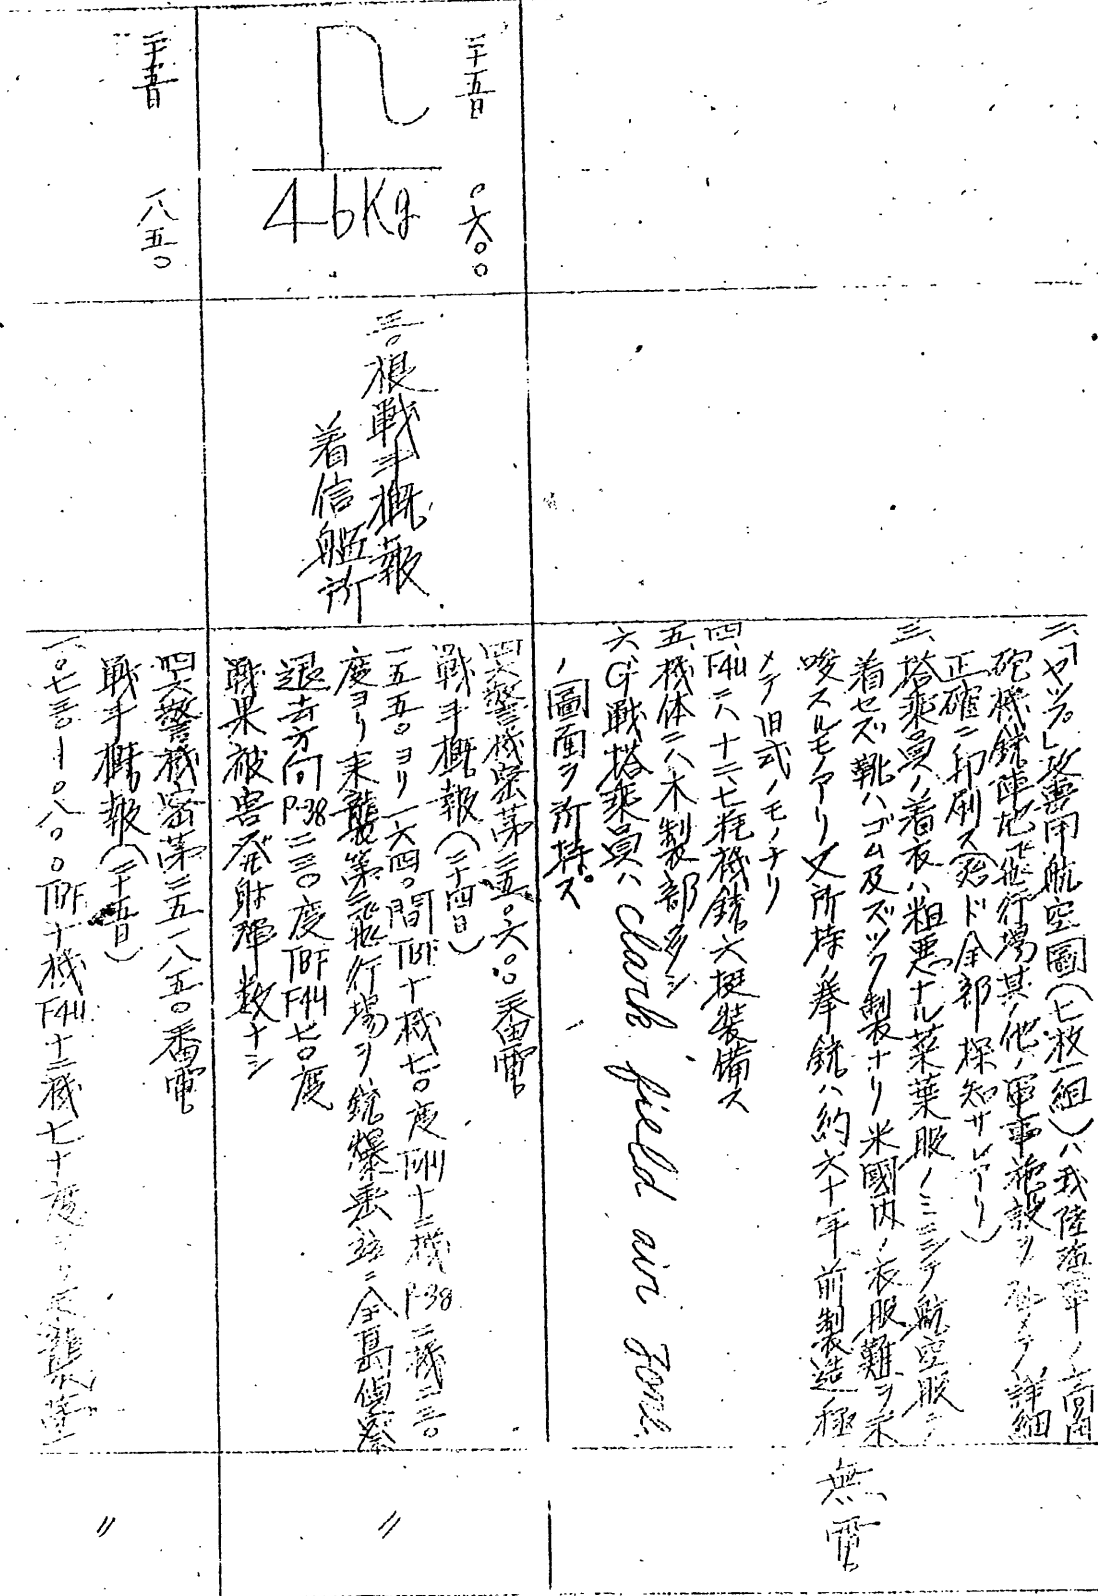 二、「ヤップ」攻撃用航空圖(七枚一組)ハ我陸海軍ノ高角
砲機銃陣地飛行場其ノ他ノ軍事施設ヲ極メテ詳細
正確ニ印刷ス(殆ド全部探知サレアリ)
三、塔乘員ノ着衣ハ粗悪ナル菜葉服ノミニシテ航空服ヲ
着セズ靴ハゴム及ズック製ナリ米國内ノ衣服難ヲ示
唆スルモノアリ又所持ノ拳銃ハ約六十年前製造極
メテ旧式ノモノナリ
四、F4Uニハ十二、七粍機銃六挺装備ス
五、機体ニハ木製部多シ
六、G戦塔乘員ハ Clark field air Zone
ノ圖面ヲ所持ス。
無電
二十五日 〇六〇〇
46Kg
三〇根戦斗概報
着信艦所
四六警機密第二五〇六〇〇番電
戦斗概報(二十四日)
一五五〇ヨリ一六四〇間TBF十機七〇度F4U十二機P-38二機二三〇
度ヨリ来襲第三飛行場ヲ銃爆撃並ニ全島偵察
退去方向P-38二三〇度TBF F4U七〇度
戦果被害発射弾数ナシ
〃
二十五日 一八五〇
四六警機密第二五一八五〇番電
戦斗概報(二十五日)
一、〇七三〇-〇八〇〇TBF十機F4U十二機七十度ヨリ来襲
〃